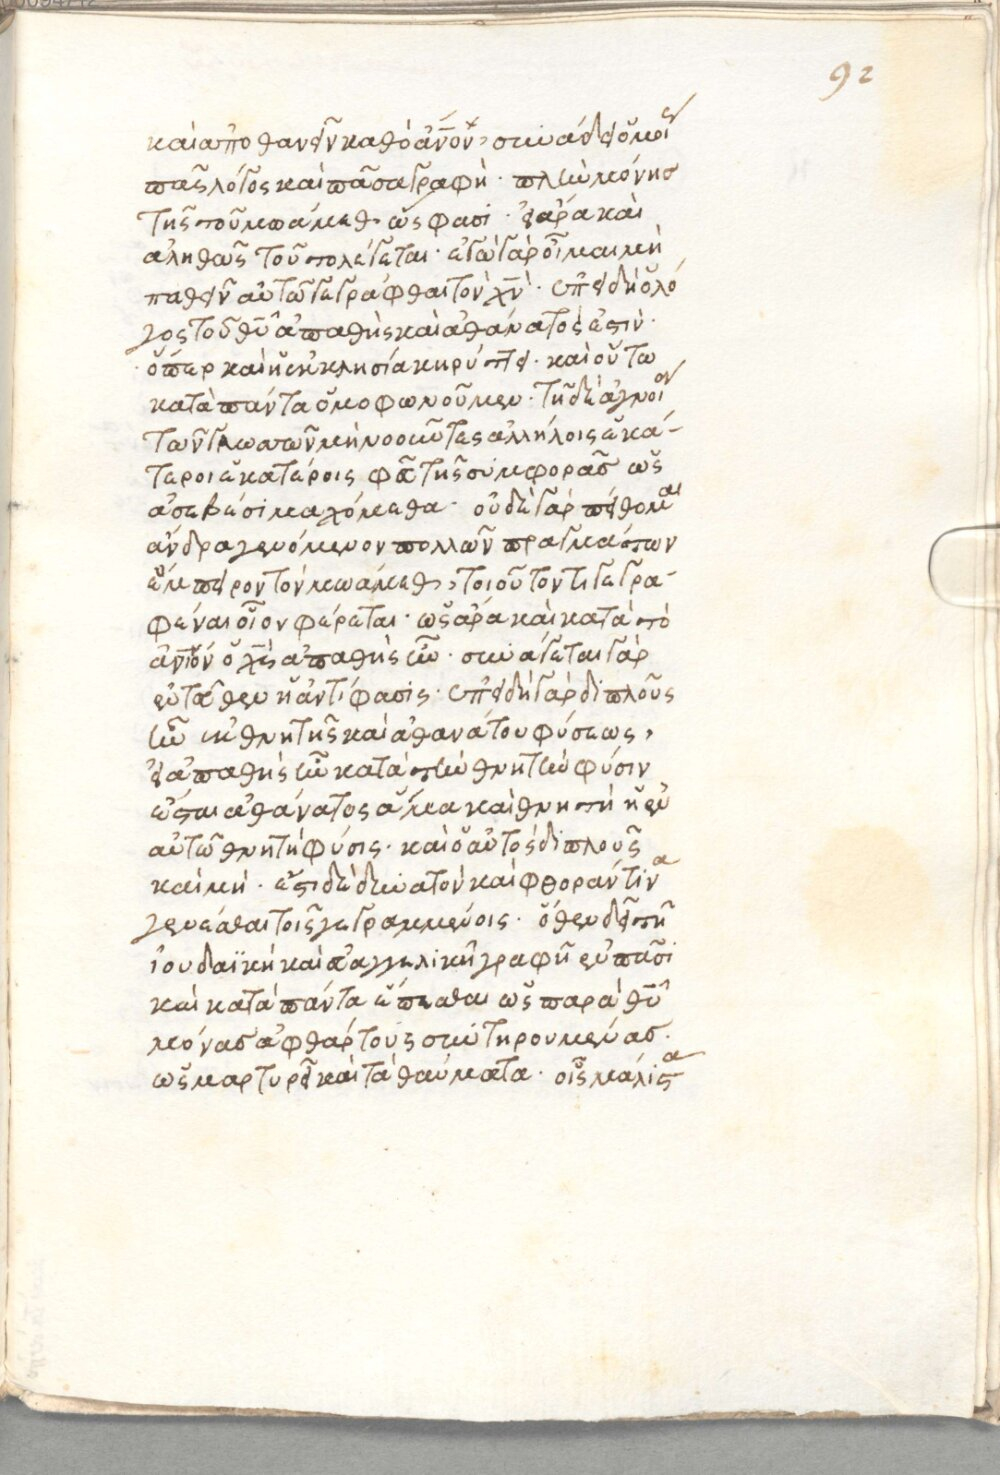 92
καὶ ἀποθανεῖν καθὸ ἄνον, συνάδει ὁμοῦ
πᾶς λόγος καὶ πᾶσα γραφή. πλὴν μόνης
τῆς τοῦ μωάμεθ, ὥς φασι. εἰ ἄρα καὶ
ἀληθῶς τοῦτο λέγεται. ἐγὼ γὰρ οἶμαι μὴ
παθεῖν αὐτῶ γεγράφθαι τὸν χν. ἐπειδὴ ὁ λό
γος τοῦ θυ ἀπαθὴς καὶ ἀθάνατός ἐστιν.
ὅπερ καὶ ἡ ἐκκλησία κηρύττει. καὶ οὕτω
κατὰ πάντα ὁμοφωνοῦμεν. τῆ δὲ ἀγνοία
τῶν γλωττῶν μὴ νοοῦντες ἀλλήλοις ἑκά-
τεροι ἑκατέροις φεῦ τῆς συμφορᾶς ὡς
ἀσεβέσι μαχόμεθα. οὐδὲ γὰρ πείθομαι
ἄνδρα γενόμενον πολλῶν πραγμάτων
ἔμπειρον τὸν μωάμεθ, τοιοῦτόν τι γεγρα-
φέναι οἷον φέρεται. ὡς ἄρα καὶ κατὰ τὸ
ἄνινον ὁ χς ἀπαθὴς ἦν. συνάγεται γὰρ
ἐνταῦθεν ἡ ἀντίφασις. ἐπειδὴ γὰρ διπλοῦς
ἦν ἐκ θνητῆς καὶ ἀθανάτου φύσεως,
εἰ ἀπαθὴς ἦν κατὰ τὴν θνητὴν φύσιν
ἔσται ἀθάνατος ἅμα καὶ θνητὴ ἡ ἐν
αὐτῶ θνητὴ φύσις. καὶ ὁ αὐτὸς διπλοῦς
καὶ μή. ἔστι δὲ δυνατὸν καὶ φθοράν τινα
γενέσθαι τοῖς γεγραμμένοις. ὅθεν δεῖ τῆ
ἰουδαϊκῆ καὶ εὐαγγελικῆ γραφῆ ἐν πᾶσι
καὶ κατὰ πάντα ἕπεσθαι ὡς παρὰ θυ
μόνας ἀφθάρτους συντηρουμένας.
ὡς μαρτυρεῖ καὶ τὰ θαύματα. οἷς μάλιστα